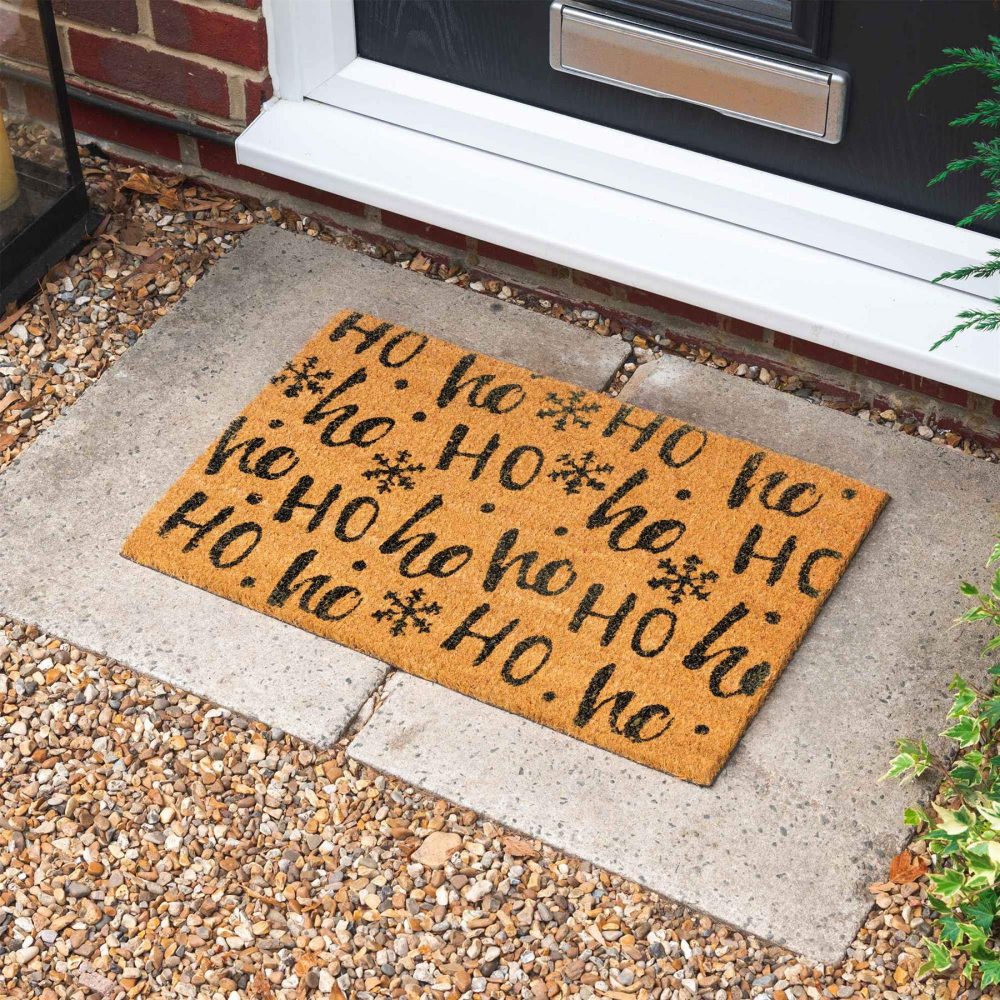 HO ho HO ho
ho HO ho HO
ho HO ho ho HO ho
HO ho HO ho